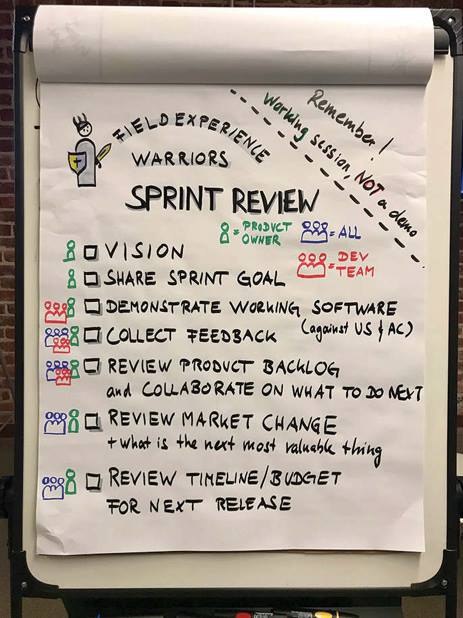 Remember!
Working session, NOT a demo
FIELD EXPERIENCE
WARRIORS
SPRINT REVIEW
= PRODUCT OWNER
= ALL
= DEV TEAM
VISION
SHARE SPRINT GOAL
DEMONSTRATE WORKING SOFTWARE
(against US & AC)
COLLECT FEEDBACK
REVIEW PRODUCT BACKLOG
and COLLABORATE ON WHAT TO DO NEXT
REVIEW MARKET CHANGE
+ what is the next most valuable thing
REVIEW TIMELINE/BUDGET
FOR NEXT RELEASE